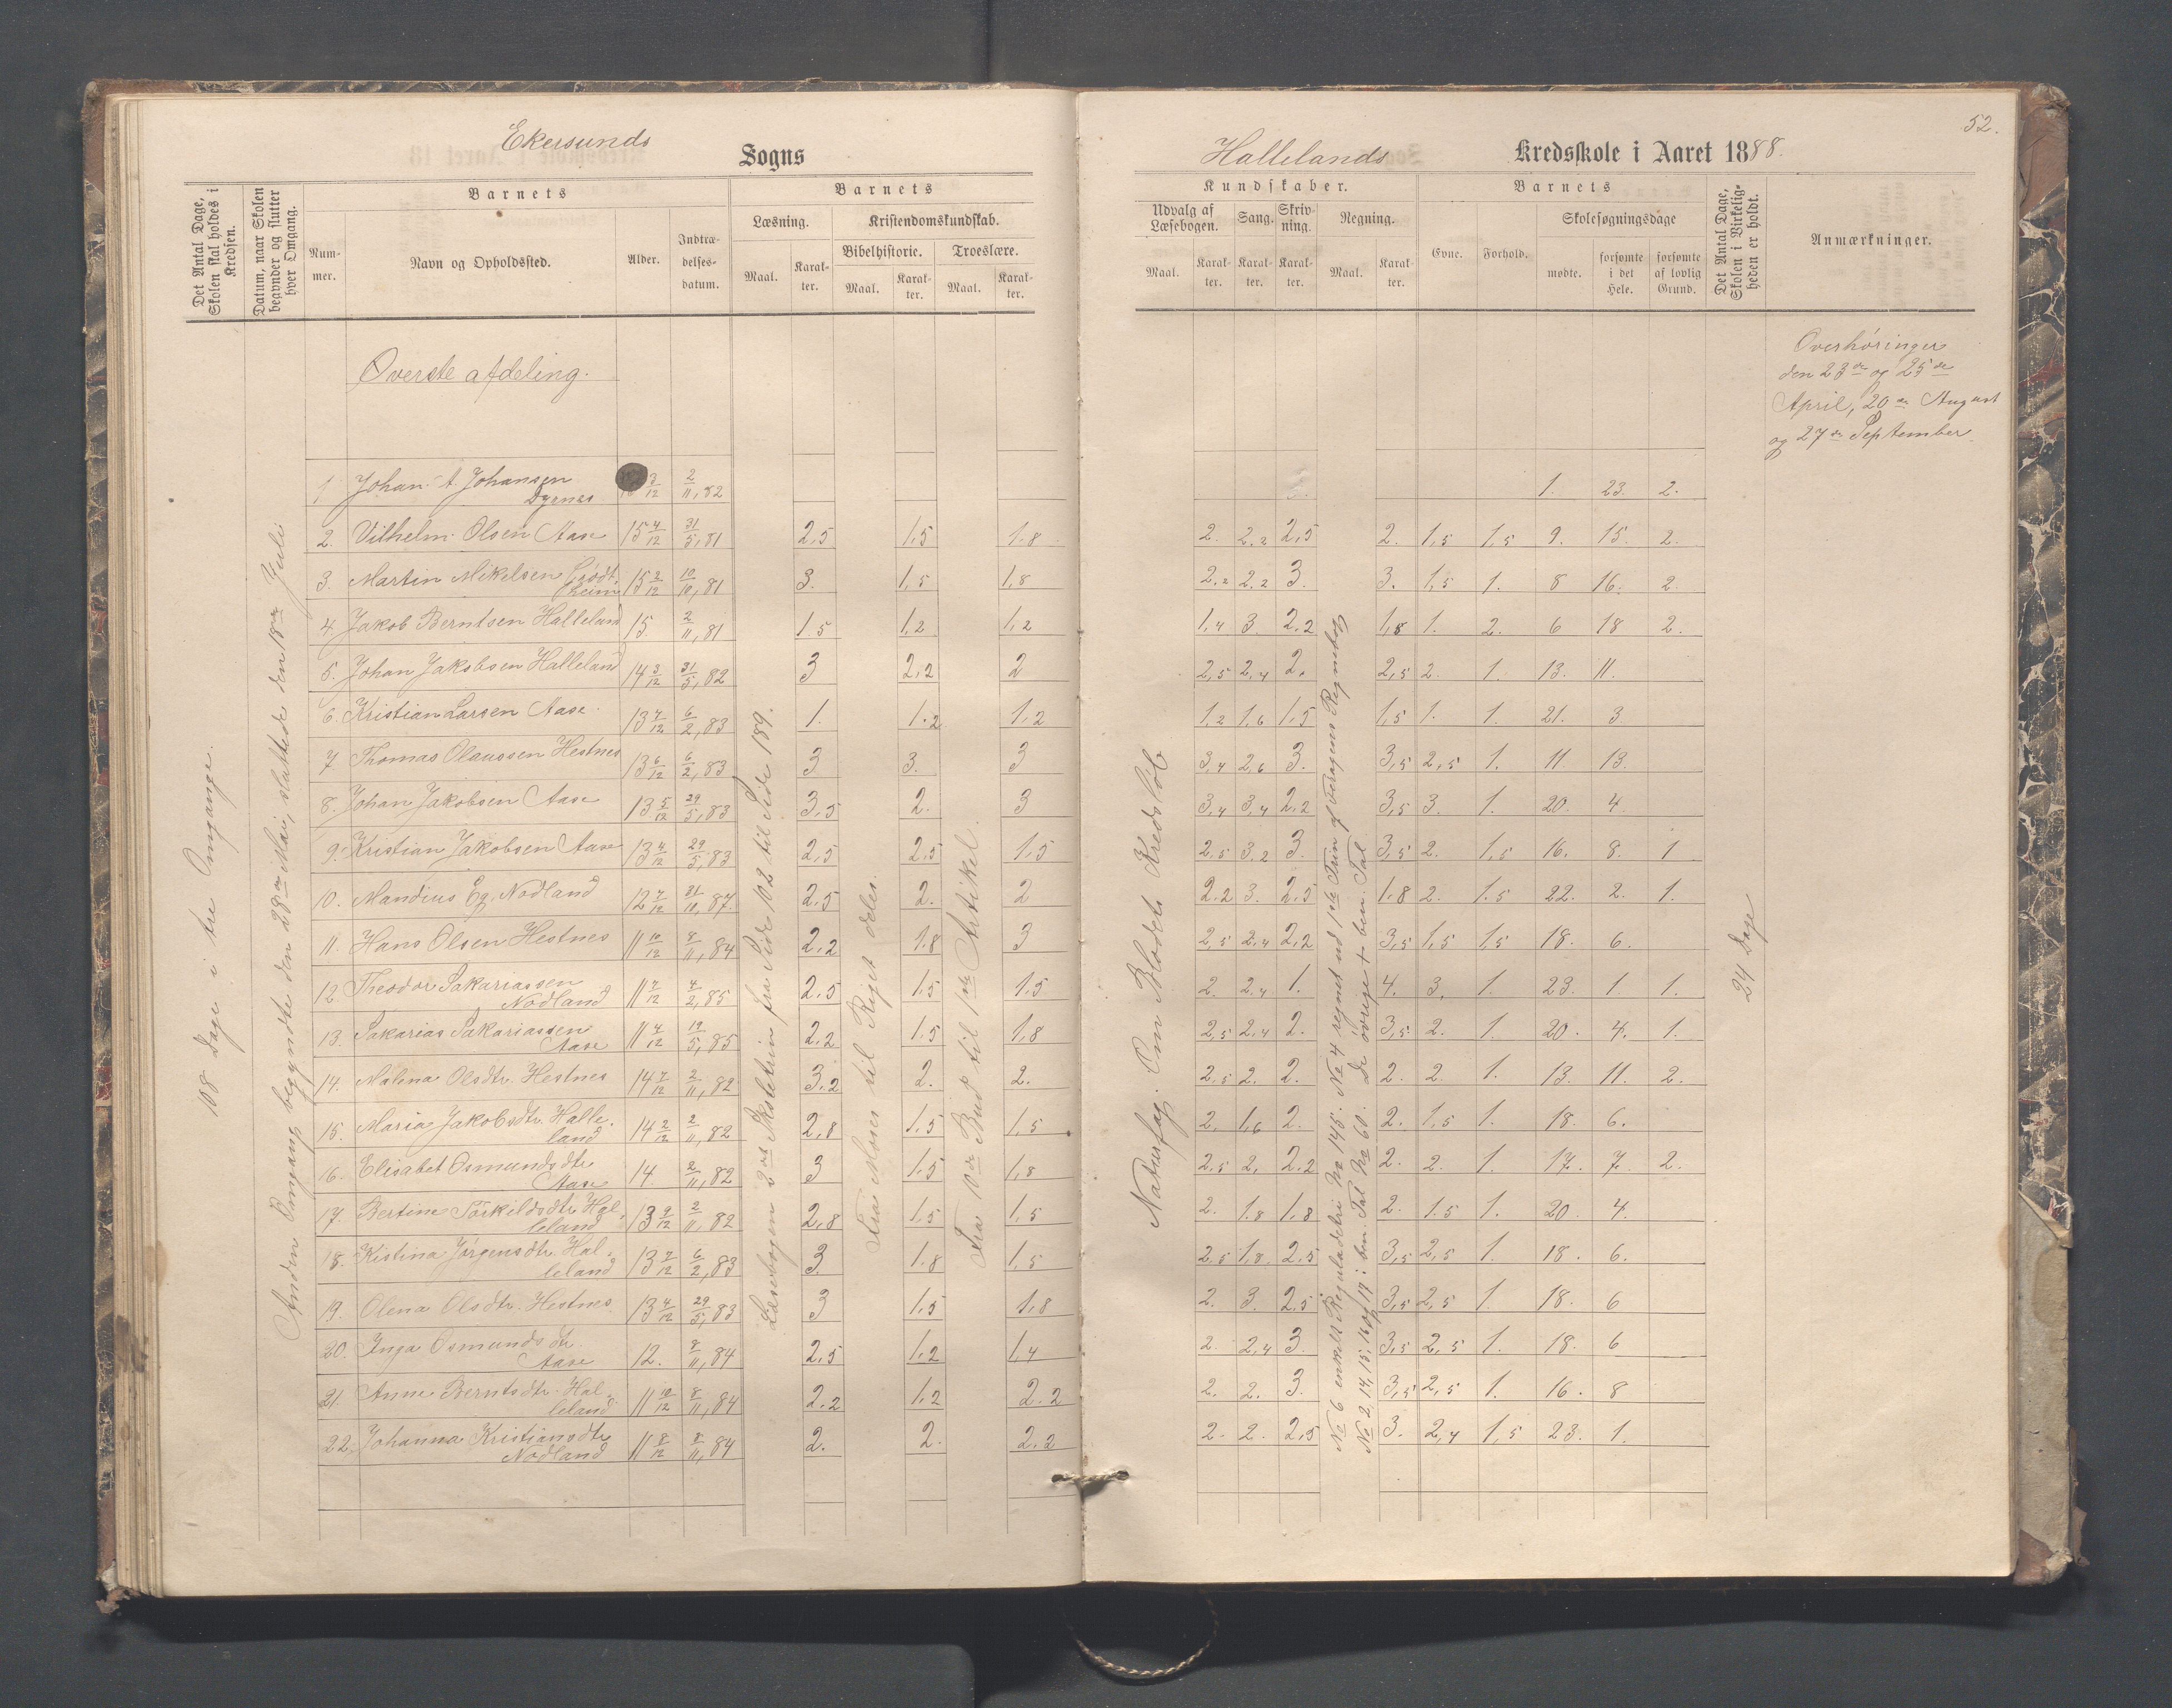 Ekersunds Sogns
Det Antal Dage, Skolen skal holdes i Kredsen.
Datum, naar Skolen begynder og slutter hver Omgang.
Barnets
Nummer.
Navn og Opholdssted.
Alder.
Indtrædelsesdatum.
Barnets
Læsning.
Kristendomskundskab.
Bibelhistorie.
Troeslære.
Maal.
Karakter.
Maal.
Karakter.
Maal.
Karakter.
108 Dage i tre Omgange.
Anden Omgang begyndte den 28de Mai, sluttede den 18de Juli
Læsebogen 2det Skoletrin fra Side 102 til Side 189.
Fra Moses til Riget deles.
Fra 10de Bud til 1ste Artikel.
Øverste afdeling.
1 Johan A Johansen Dyrnes 3/12 2/11,82
2. Vilhelm Olsen Aase 15 4/12 31/5,81 2,5 1,5 1,8
3. Martin Mikelsen 15 2/12 10/10,81 3. 1,5 1,8
4. Jakob Berntsen Halleland 15. 2/11,81 1,5 1,2 1,2
5. Johan Jakobsen Halleland 14 3/12 31/5,82 3 2,2 2
6. Kristian Larsen Aase 13 7/12 6/2,83 1. 1,2 1,2
7 Thomas Olaussen Hestnes 13 6/12 6/2,83 3 3. 3
8. Johan Jakobsen Aase 13 5/12 29/5,83 3,5 2. 3
9. Kristian Jakobsen Aase 13 4/12 29/5,83 2,5 2,5 1,5
10. Mandius Eg. Nodland 12 7/12 31/10,87. 2,5 2. 2
11. Hans Olsen Hestnes 11 10/12 8/11,84 2,2 1,8 3
12 Theodor Sakariassen Nodland 11 7/12 4/2,85 2,5 1,5 1,5
13. Sakarias Sakariassen Aase 11 4/12 19/5,85 2,2 1,5 1,8
14. Malena Olsdtr. Hestnes 14 7/12 2/11,82 3,2 2. 2.
15. Maria Jakobsdtr. Halleland 14 2/12 2/11,82 2,8 1,5 1,5
16. Elisabet Osmundsdtr Aase 14. 2/11,82 3 1,5 1,8
17. Bertine Torkildsdtr. Halleland 13 9/12 2/11,82 2,8 1,5 1,5
18. Kistina Jørgensdtr. Halleland 13 7/12 6/2,83 3. 1,8 1,5
19. Olena Olsdtr. Hestnes 13 4/12 29/5,83 3 1,5 1,8
20. Inga Osmundsdtr. Aase 12. 8/11,84 2,5 1,2 1,4
21. Anne Berntsdtr. Halleland 11 10/12 8/11,84 2,2 1,2 2,2
22. Johanna Kristiansdtr Nodland 11 8/12 8/11,84 2. 2. 2,2
52.
Hallelands Kredsskole i Aaret 1888.
Kundskaber.
Udvalg af Læsebogen.
Sang.
Skrivning.
Regning.
Maal.
Karakter.
Karakter.
Karakter.
Maal.
Karakter.
Barnets
Evne.
Forhold.
Skolesøgningsdage
mødte.
forsømte i det Hele.
forsømte af lovlig Grund.
Det Antal Dage, Skolen i Virkeligheden er holdt.
Anmærkninger.
Overhøringer
den 23de og 25de
April, 20de August
og 27de September
Naturfag: Om Blodets Kredsløb
No 6 enkelt Reguladetri No 145. No 4 regnet ud 1ste Trin af Foragers Regnebog
No 2, 14, 15, 16 og 17: ben. Tal No 60. De øvrige + ben. Tal
24 Dage
1. 23. 2.
2. 2,2 2,5 2. 1,5 1,5 9. 15. 2.
2,2 2,2 3. 3. 1,5 1. 8 16. 2.
1,4 3. 2,2 1,8 1. 2. 6 18 2.
2,5 2,4 2. 2,5 2. 1. 13. 11.
1,2 1,6 1,5 1,5 1. 1. 21. 3
3,4 2,6 3. 3,5 2,5 1. 11 13.
3,4 3,4 2,2 3,5 3. 1. 20. 4.
2,5 3,2 3. 3,5 2. 1,5 16. 8. 1
2,2 3. 2,5 1,8 2. 1,5 22. 2. 1.
2,5 2,4 2,2 3,5 1,5 1,5 18. 6.
2. 2,4 1. 4. 3. 1. 23. 1 1.
2,5 2,4 2. 3,5 2. 1. 20. 4. 1.
2,5 2. 2. 2. 2. 1. 13. 11. 2.
2. 1,6 2. 2. 1,5 1. 18. 6.
2,5 2. 2,2 2. 2. 1. 17. 7. 2.
2. 1,8 1,8 2. 1,5 1. 20. 4.
2,5 1,8 2,5 3,5 2,5 1. 18. 6.
2. 3. 2,5 3,5 2,5 1. 18. 6
2. 2,4 3. 3,5 2,5 1. 18. 6
2. 2. 3. 3,5 2,5 1. 16. 8
2. 2. 2,5 3. 2,4 1,5 23. 1.